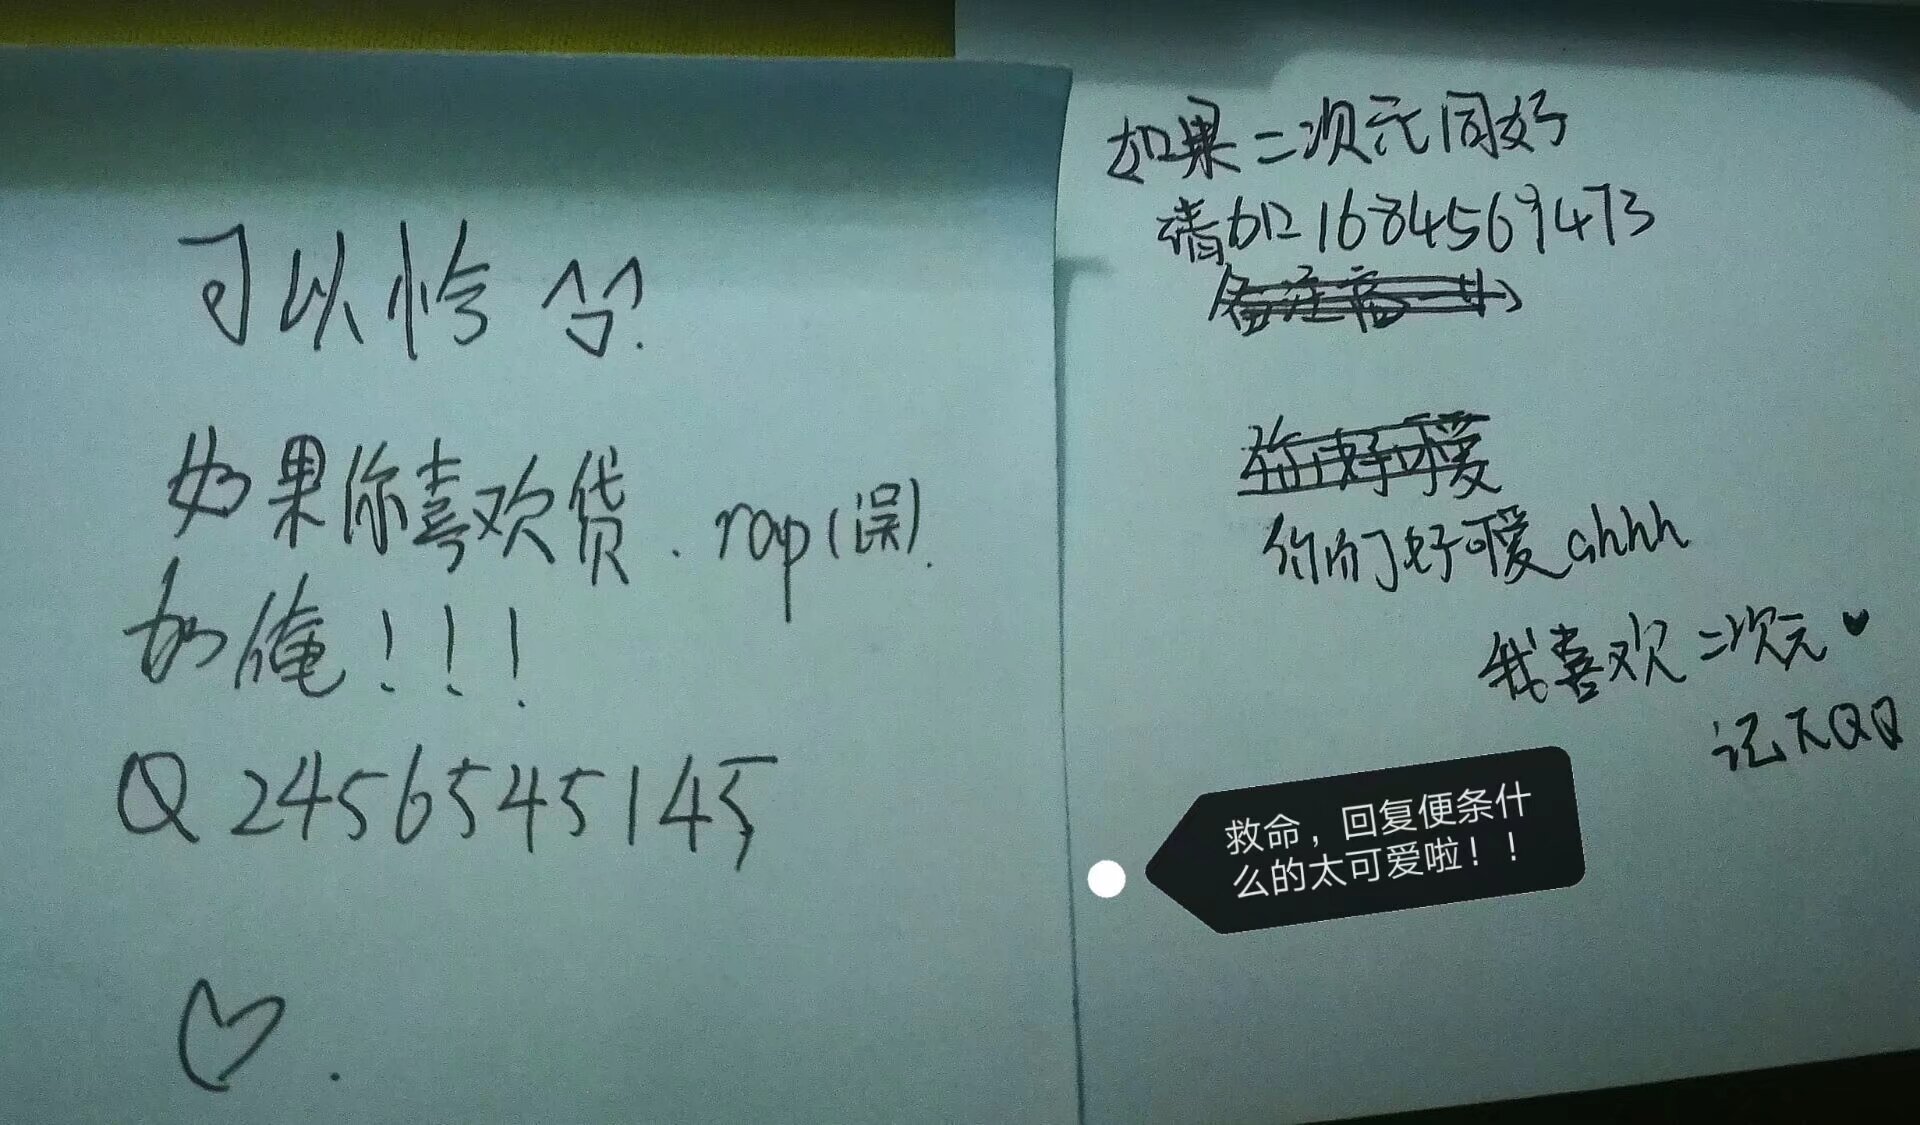 可以恰 ^^.
如果你喜欢货.rap(误).
加俺!!!
Q 2456545145
如果二次元同好
请加1684569473
你好可爱
你们好可爱ahhh
我喜欢二次元♥
记下QQ
救命，回复便条什
么的太可爱啦！！